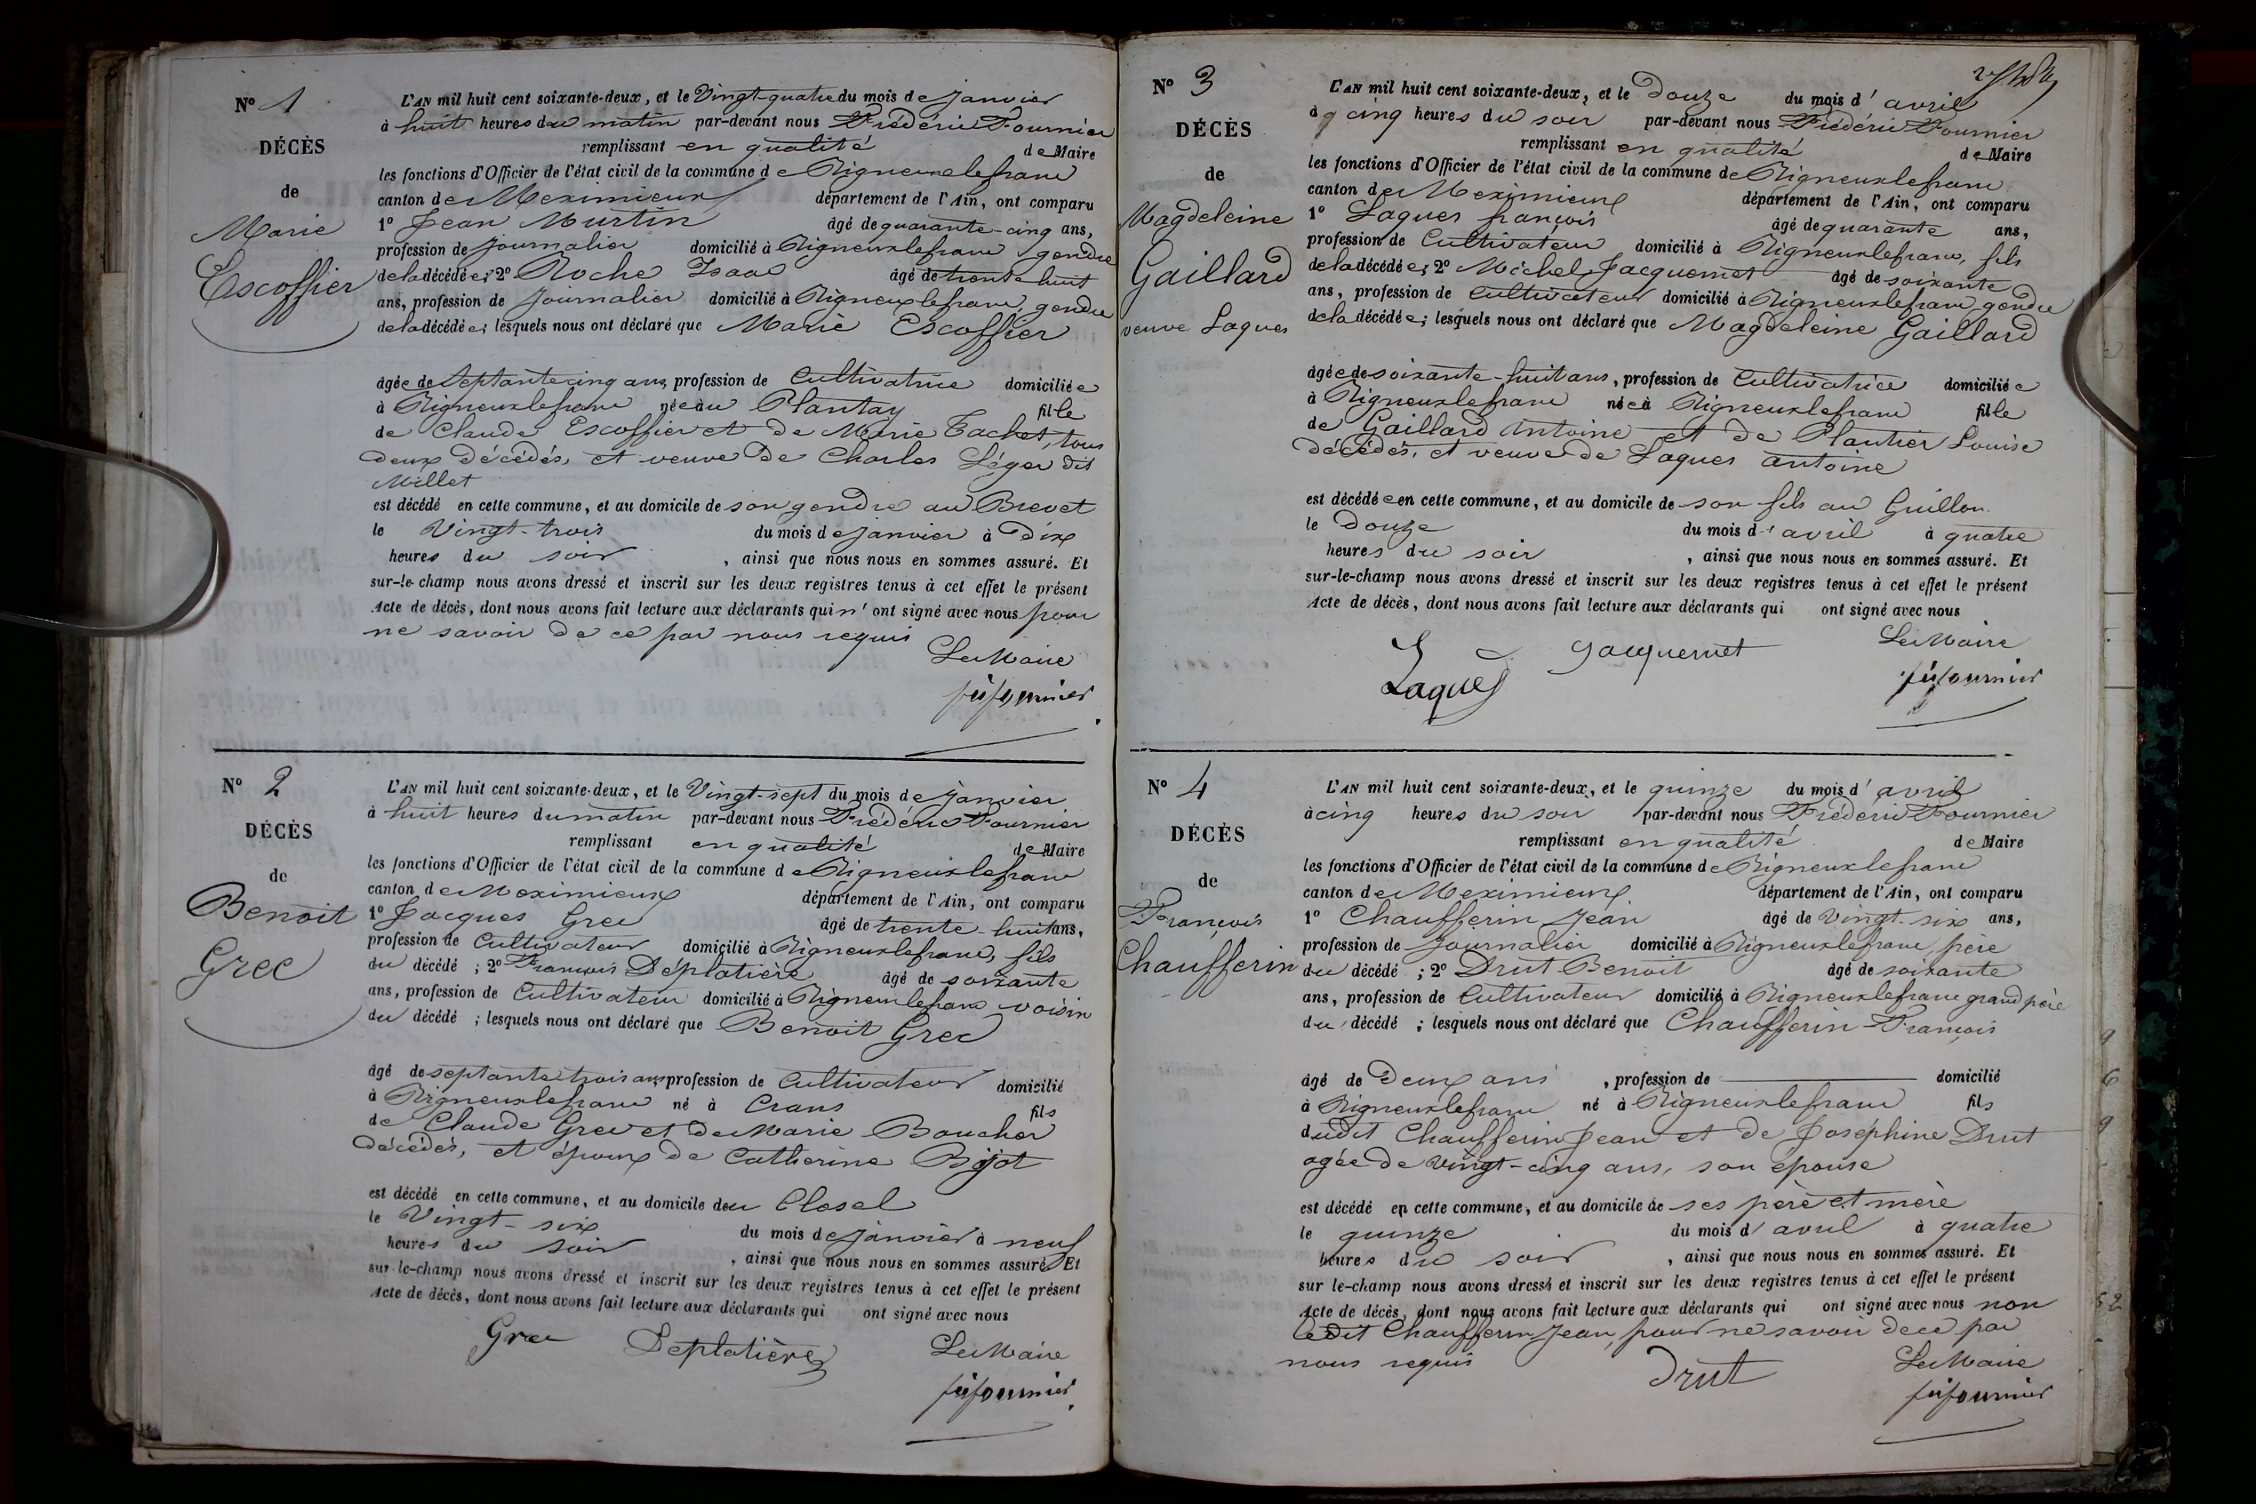 N° 1
DÉCÈS
de
Marie
Escoffier
L'AN mil huit cent soixante-deux, et le Vingt-quatre du mois de janvier
à huit heures du matin par-devant nous Frédéric Fournier
remplissant en qualité de Maire
les fonctions d'Officier de l'état civil de la commune de Rigneuxlefranc
canton de Meximieux département de l'Ain, ont comparu
1° Jean Murtin âgé de quarante-cinq ans,
profession de journalier domicilié à Rigneuxlefranc, gendre
de la décédée; 2° Roche Isaac âgé de trente huit
ans, profession de journalier domicilié à Rigneuxlefranc, gendre
de la décédée; lesquels nous ont déclaré que Marie Escoffier
âgée de Septante cinq ans, profession de Cultivatrice domiciliée
à Rigneuxlefranc née au Plantay fille
de Claude Escoffier et de Marie Tachet, tous
deux décédés, et veuve de Charles Léger dit
Millet
est décédé en cette commune, et au domicile de son gendre au Brevet
le Vingt-trois du mois de janvier à dix
heures du soir, ainsi que nous nous en sommes assuré. Et
sur-le-champ nous avons dressé et inscrit sur les deux registres tenus à cet effet le présent
Acte de décès, dont nous avons fait lecture aux déclarants qui n'ont signé avec nous pour
ne savoir de ce par nous requis
Le Maire
fréfournier
N° 2
DÉCÈS
de
Benoit
Grec
L'AN mil huit cent soixante-deux, et le Vingt-sept du mois de janvier
à huit heures du matin par-devant nous Frédéric Fournier
remplissant en qualité de Maire
les fonctions d'Officier de l'état civil de la commune de Rigneuxlefranc
canton de Meximieux département de l'Ain, ont comparu
1° Jacques Grec âgé de trente-huit ans,
profession de Cultivateur domicilié à Rigneuxlefranc, fils
du décédé; 2° François Déplatière âgé de soixante
ans, profession de Cultivateur domicilié à Rigneuxlefranc voisin
du décédé; lesquels nous ont déclaré que Benoit Grec
âgé de septante trois ans profession de Cultivateur domicilié
à Rigneuxlefranc né à Crans fils
de Claude Grec et de Marie Boucher
décédés, et époux de Catherine Bijot
est décédé en cette commune, et au domicile du Closel
le Vingt-six du mois de janvier à neuf
heures du soir, ainsi que nous nous en sommes assuré. Et
sur-le-champ nous avons dressé et inscrit sur les deux registres tenus à cet effet le présent
Acte de décès, dont nous avons fait lecture aux déclarants qui ont signé avec nous
Grec Deplatière Le Maire
fréfournier
N° 3
DÉCÈS
de
Magdeleine
Gaillard
veuve Laques
L'AN mil huit cent soixante-deux, et le douze du mois d'avril
à cinq heures du soir par-devant nous Frédéric Fournier
remplissant en qualité de Maire
les fonctions d'Officier de l'état civil de la commune de Rigneuxlefranc
canton de Meximieux département de l'Ain, ont comparu
1° Laques françois âgé de quarante ans,
profession de Cultivateur domicilié à Rigneuxlefranc, fils
de la décédée; 2° Michel Jacquemet âgé de soixante
ans, profession de cultivateur domicilié à Rigneuxlefranc, gendre
de la décédée; lesquels nous ont déclaré que Magdeleine Gaillard
âgée de soixante-huit ans, profession de Cultivatrice domiciliée
à Rigneuxlefranc née à Rigneuxlefranc fille
de Gaillard Antoine et de Plantier Louise
décédés, et veuve de Laques antoine
est décédée en cette commune, et au domicile de son fils au Guillon
le douze du mois d'avril à quatre
heures du soir, ainsi que nous nous en sommes assuré. Et
sur-le-champ nous avons dressé et inscrit sur les deux registres tenus à cet effet le présent
Acte de décès, dont nous avons fait lecture aux déclarants qui ont signé avec nous
Laques Jacquemet Le Maire
fréfournier
N° 4
DÉCÈS
de
François
Chaufferin
L'AN mil huit cent soixante-deux, et le quinze du mois d'avril
à cinq heures du soir par-devant nous Frédéric Fournier
remplissant en qualité de Maire
les fonctions d'Officier de l'état civil de la commune de Rigneuxlefranc
canton de Meximieux département de l'Ain, ont comparu
1° Chaufferin Jean âgé de vingt-six ans,
profession de Journalier domicilié à Rigneuxlefranc, père
du décédé; 2° Drut Benoit âgé de soixante
ans, profession de Cultivateur domicilié à Rigneuxlefranc grand père
du décédé; lesquels nous ont déclaré que Chaufferin François
âgé de Deux ans, profession de domicilié
à Rigneuxlefranc né à Rigneuxlefranc fils
dudit Chaufferin Jean et de Joséphine Drut
agée de vingt-cinq ans, son épouse
est décédé en cette commune, et au domicile de ses père et mère
le quinze du mois d'avril à quatre
heures du soir, ainsi que nous nous en sommes assuré. Et
sur le-champ nous avons dressé et inscrit sur les deux registres tenus à cet effet le présent
Acte de décès, dont nous avons fait lecture aux déclarants qui ont signé avec nous non
ledit Chaufferin Jean, pour ne savoir de ce par
nous requis
Drut Le Maire
fréfournier